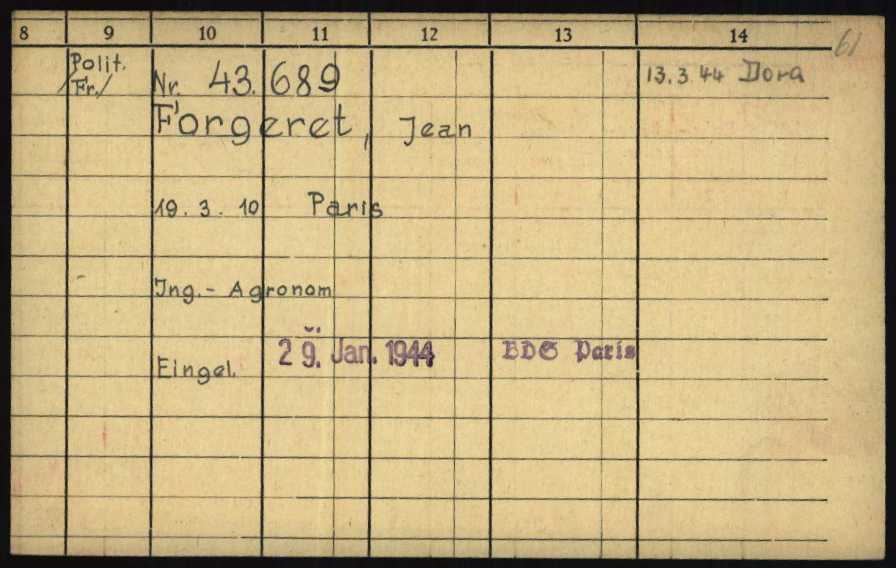 8 9 10 11 12 13 14
61
Polit. Nr. 43.689 13.3.44 Dora
/Fr./
Forgeret, Jean
19. 3. 10 Paris
Ing.- Agronom
Eingel. 29. Jan. 1944 BDS Paris